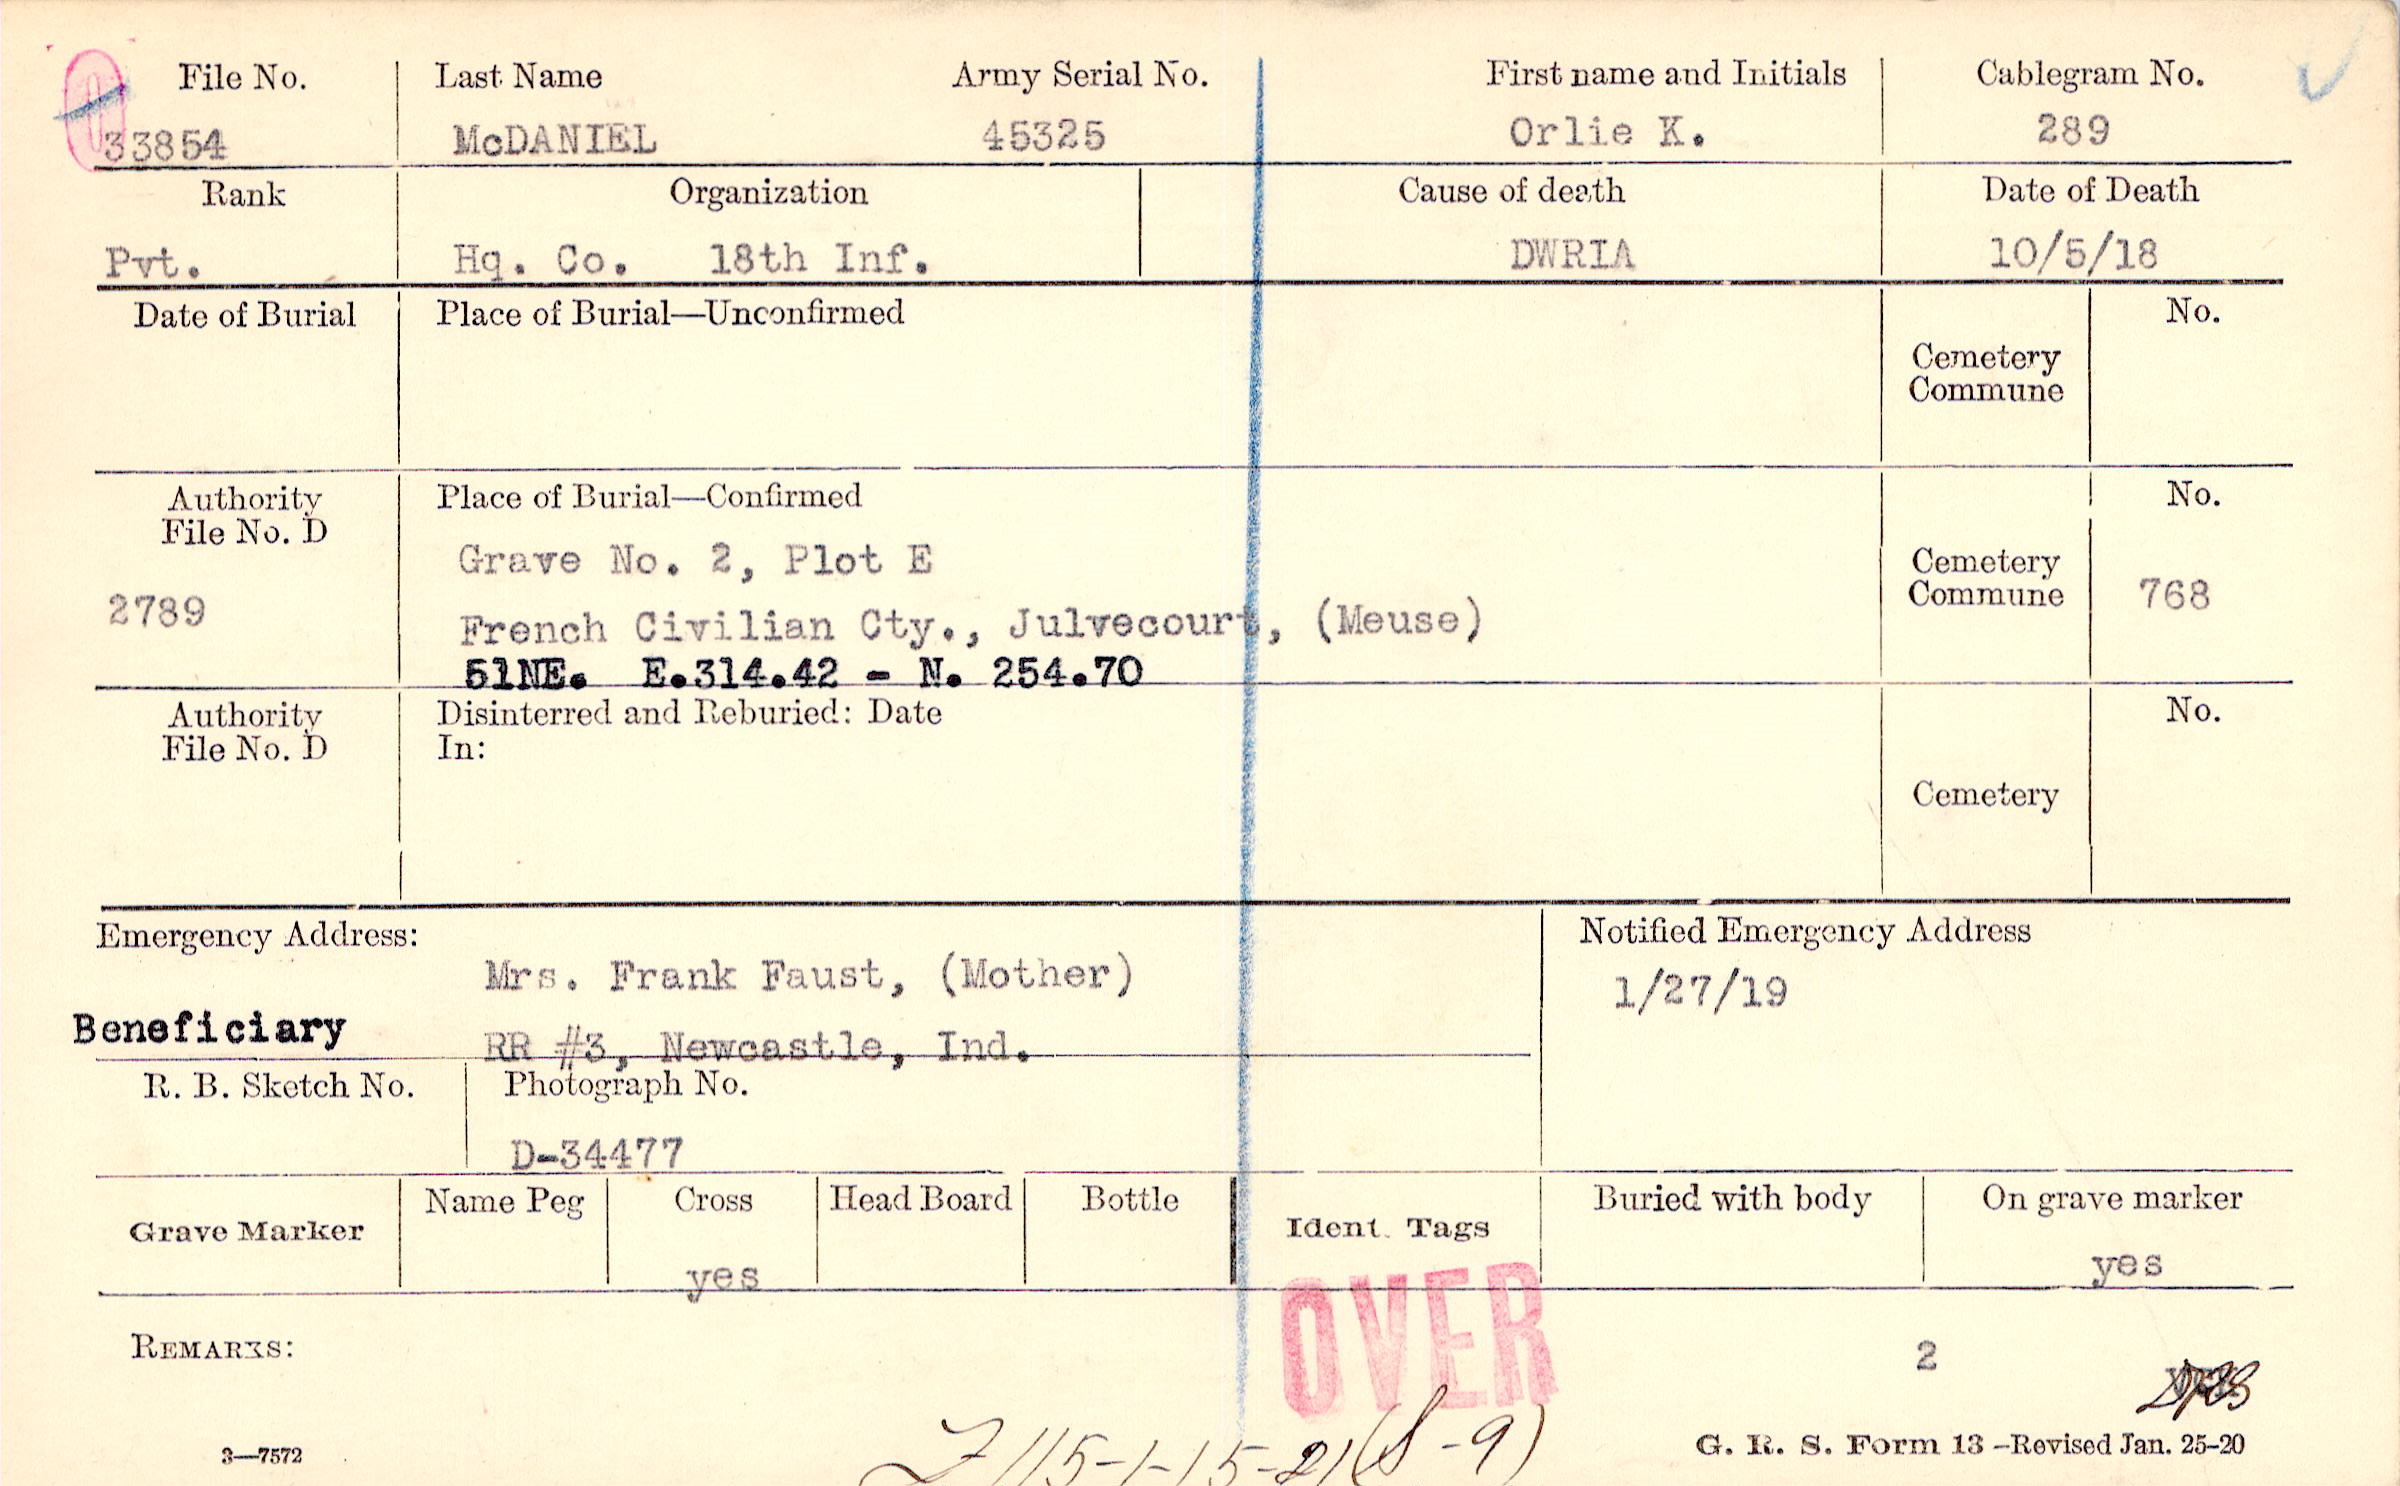 File No. Last Name Army Serial No. First name and Initials Cablegram No.
33854 McDANIEL 45325 Orlie K. 289
Rank Organization Cause of death Date of Death
Pvt. Hq. Co. 18th Inf. DWRIA 10/5/18
Date of Burial Place of Burial—Unconfirmed No.
Cemetery
Commune
Authority Place of Burial—Confirmed No.
File No. D
Grave No. 2, Plot E
Cemetery
Commune 768
2789
French Civilian Cty., Julvecourt, (Meuse)
51NE. E.314.42 - N. 254.70
Authority Disinterred and Reburied: Date No.
File No. D In:
Cemetery
Emergency Address: Notified Emergency Address
Mrs. Frank Faust, (Mother) 1/27/19
Beneficiary RR #3, Newcastle, Ind.
R. B. Sketch No. Photograph No.
D-34477
Grave Marker Name Peg Cross Head Board Bottle Ident. Tags Buried with body On grave marker
yes yes
OVER
REMARKS: 2
3—7572 G. R. S. Form 13 -Revised Jan. 25-20